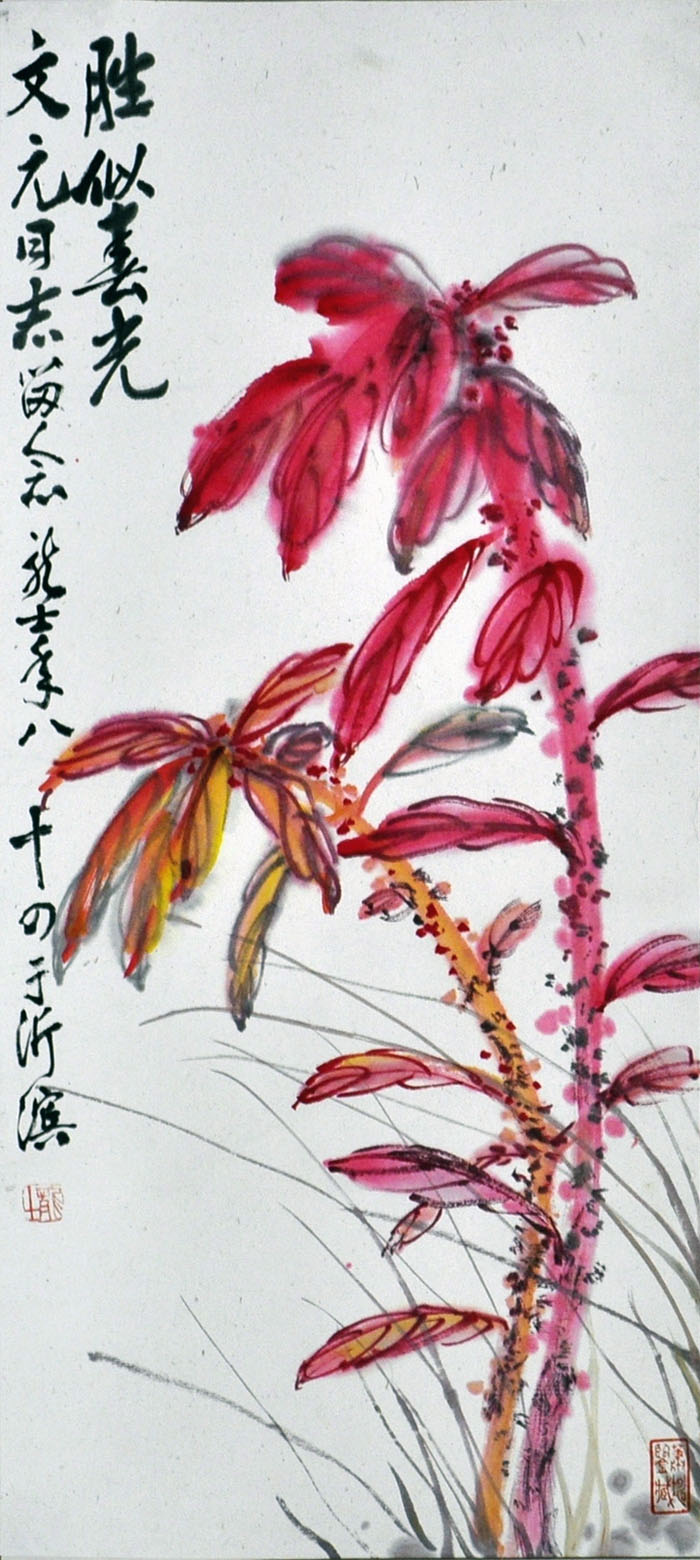 胜似春光
文元同志留念龙士年八十四于沂滨